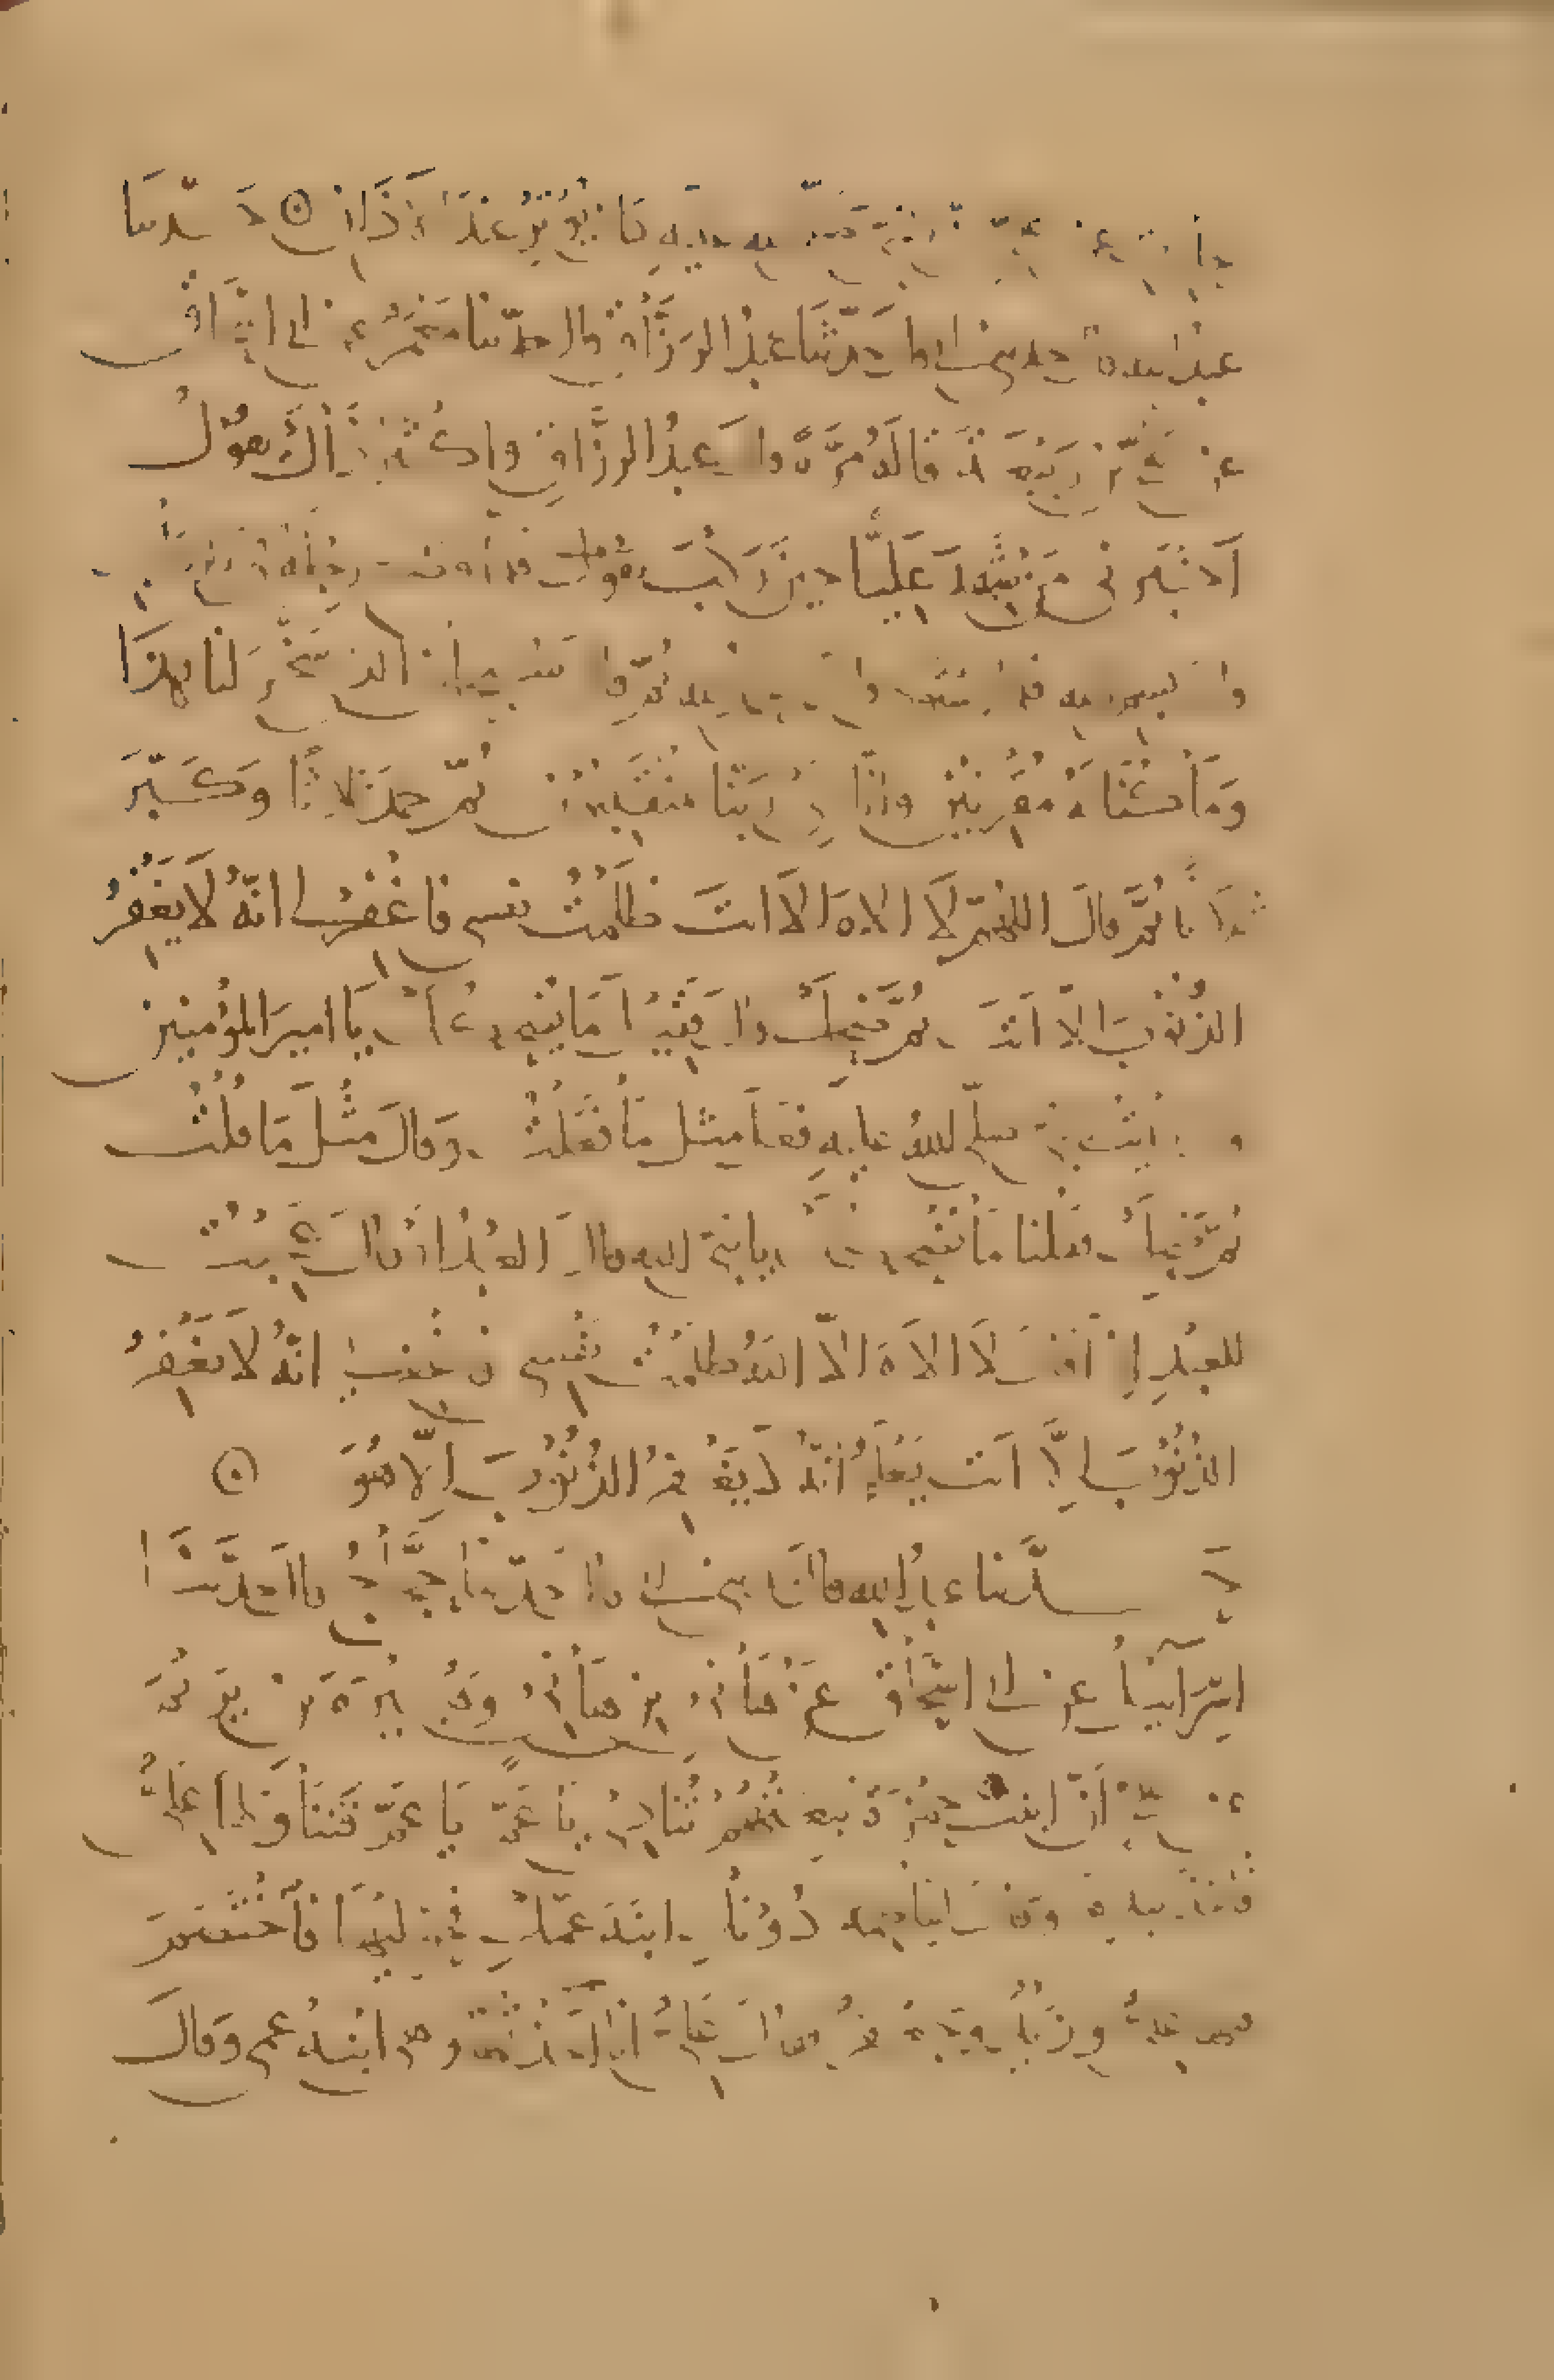 عن علي ان النبي صلى الله عليه كان يوتر عند الأذان ۞ حدثنا
عبد الله قال حدثني ابي قال حدثنا عبد الرزاق قال حدثنا معمر عن ابي اسحاق
عن علي بن ربيعة قاله مرة قال عبد الرزاق واكثر ذاك يقول
اخبرني من شهد عليا حين ركب يقول فلما وضع رجله في الركاب
قال بسم الله فلما استوى قال الحمد لله ثم قال سبحان الذي سخر لنا هذا
وما كنا له مقرنين وانا الى ربنا لمنقلبون ثم حمد ثلاثا وكبر
ثلاثا ثم قال اللهم لا الاه الا انت ظلمت نفسي فاغفر لي انه لا يغفر
الذنوب الا انت ثم ضحك قال فقيل ما يضحكك يا امير المؤمنين
قال رايت النبي صلى الله عليه فعل مثل ما فعلت وقال مثل ما قلت
ثم ضحك فقلنا ما يضحكك يا نبي الله قال العبد او قال عجبت
للعبد اذا قال لا الاه الا انت ظلمت نفسي فاغفر لي انه لا يغفر
الذنوب الا انت يعلم انه لا يغفر الذنوب الا هو ۞
حدثنا عبد الله قال حدثني ابي قال حدثنا حجاج قال حدثنا
اسرآئيل عن ابي اسحاق عن هانئ بن هانئ وهبيرة بن يريم
عن علي ان ابنت حمزة تبعتهم تنادي يا عم يا عم فتناولها علي
فاخذ بيدها وقال لفاطمة دونك ابنة عمك فحوليها فاختصم
فيها علي وزيد وجعفر فقال علي انا اخذتها وهي ابنة عمي وقال